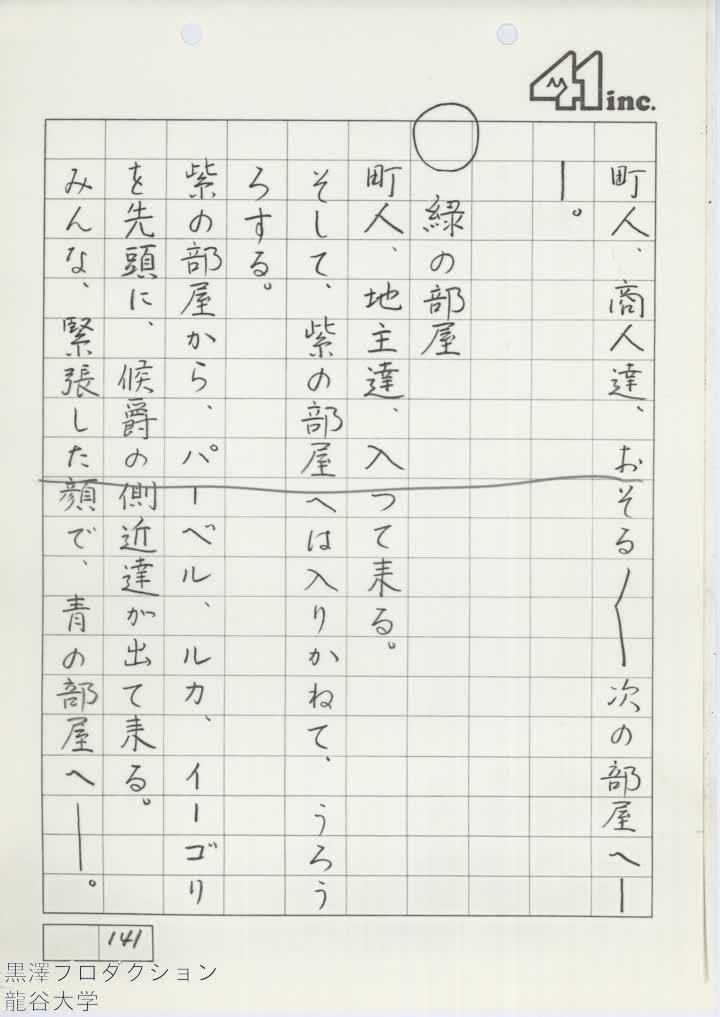 41 inc.
町人、商人達、おそる〱次の部屋へ―
―。
○緑の部屋
町人、地主達、入って来る。
そして、紫の部屋へは入りかねて、うろう
ろする。
紫の部屋から、パーベル、ルカ、イーゴリ
を先頭に、候爵の側近達が出て来る。
みんな、緊張した顔で、青の部屋へ――。
141
黒澤プロダクション
龍谷大学